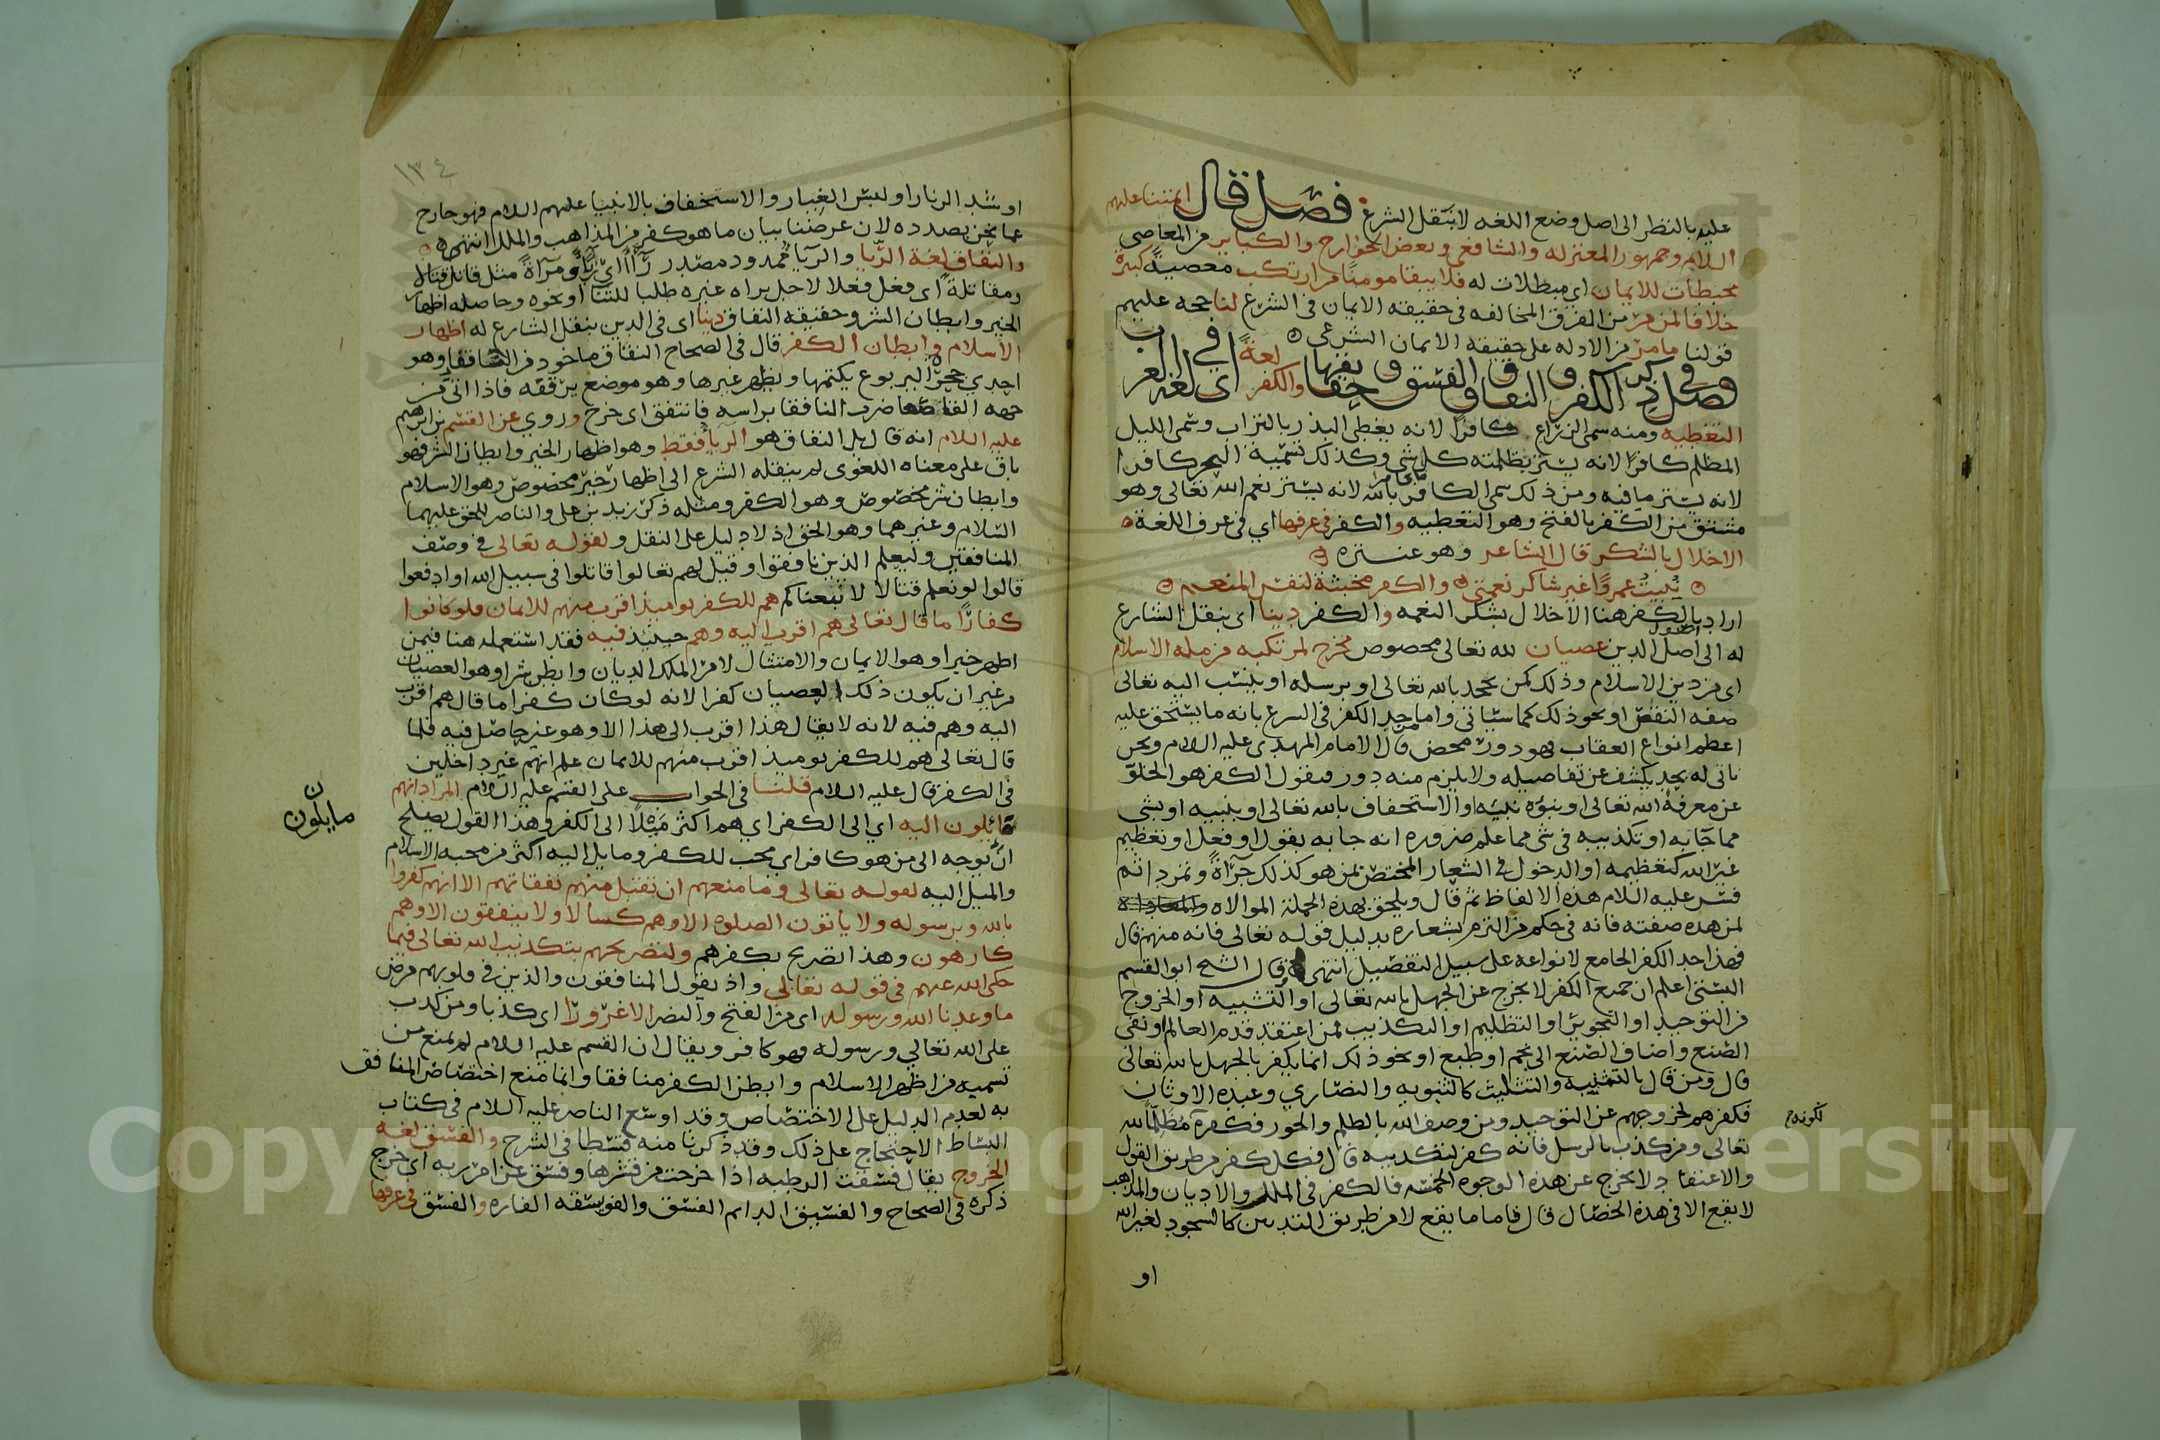 عليه بالنظر الى اصل وضع اللغه لا بنقل الشرع فصل قال ائمتنا عليهم
السلام وجمهور المعتزله والشافعي وبعض الخوارج والكباير من المعاصي
محبطات للايمان اي مبطلات له فلا يبقا مومنا من ارتكب معصية كبيرة
خلافا لمن مر من الفرق المخالفه في حقيقه الايمان في الشرع لنا حجه عليهم
قولنا ما مر من الادله على حقيقه الايمان الشرعي
فصل في ذكر الكفر والنفاق والفسق وحقايقها والكفر لغة اي في لغه العرب
التغطيه ومنه سمى الزراع كافرا لانه يغطى البذر بالتراب وسمى الليل
المظلم كافرا لانه يستر بظلمته كل شي وكذلك تسمية البحر كافرا
لانه يستر ما فيه ومن ذلك سمى الكافر بالله لانه يستر نعم الله تعالى وهو
مشتق من الكفر بالفتح وهو التغطيه والكفر في عرفها اي في عرف اللغة
الاخلال بالشكر قال الشاعر وهو عنتره
نبيت عمروا غير شاكر نعمتي والكفر مخبثة لنفس المنعم
اراد بالكفر هنا الاخلال بشكر النعمه والكفر دينا اى بنقل الشارع
له الى اصول الدين عصيان لله تعالى مخصوص مخرج لمرتكبه من مله الاسلام
اى من دين الاسلام وذلك كمن يجحد بالله تعالى او برسله او ينسب اليه تعالى
صفه النقص او نحو ذلك كما سياتى واما حد الكفر فى الشرع بانه ما يستحق عليه
اعظم انواع العقاب فهو دور محض قال الامام المهدى عليه السلام ونحن
ناتى له بحد يكشف عن تفاصيله ولا يلزم منه دور فنقول الكفر هو الخلو
عن معرفة الله تعالى او نبوه نبيه او الاستخفاف بالله تعالى او بنبيه او بشى
مما جآ به او تكذيبه في شى مما علم ضروره انه جا به بقول او فعل او تعظيم
غير الله كتعظيمه او الدخول في الشعار المختص بمن هو كذلك جرآة وتمردا ثم
فسر عليه السلام هذه الالفاظ ثم قال ويلحق بهذه الجملة الموالاه
لمن هذه صفته فانه فى حكم من التزم بشعاره بدليل قوله تعالى فانه منهم قال
فهذا حد الكفر الجامع لانواعه على سبيل التفصيل انتهى وقال الشيخ ابو القسم
البستى اعلم ان جميع الكفر لا يخرج عن الجهل بالله تعالى او التشبيه او الخروج
من التوحيد او التجوير او التظليم او التكذيب فمن اعتقد قدم العالم او نفى
الصنع واضاف الصنع الى نجم او طبع او نحو ذلك انما يكفر بالجهل بالله تعالى
قال ومن قال بالتثنيه والتثليث كالثنويه والنصارى وعبدة الاوثان
فكفرهم لخروجهم عن التوحيد ومن وصف الله بالظلم والجور فكفره
تعالى ومن كذب بالرسل فانه كفر لتكذيبه قال فكل كفر من طريق القول
والاعتقاد لا يخرج عن هذه الوجوه الخمسه فالكفر في الملل والاديان والمذاهب
لا يقع الا في هذه الخصال قال فاما ما يقع لا من طريق التدين كالسجود لغير الله
او
١٣٤
او شد الزنار او لبس الغيار والاستخفاف بالانبيا عليهم السلام فهو خارج
عما نحن بصدده لان غرضنا بيان ما هو كفر من المذاهب والملل انتهى
والنفاق لغة الريا والريا ممدود مصدر رآأ اى ريآ ومرآة مثل قاتل قتالا
ومقاتلة اى فعل فعلا لاجل يراه غيره طلبا للثنا او نحوه وحاصله اظهار
الخير وابطان الشر وحقيقه النفاق دينا اى فى الدين بنقل الشارع له اظهار
الاسلام وابطان الكفر قال في الصحاح النفاق ماخوذ من النافقا وهو
احدى جحرة اليربوع يكتمها ويظهر غيرها وهو موضع يرققه فاذا اتي من
جهه القاصعا ضرب النافقا براسه فانتفق اى خرج وروي عن القسم بن ابرهيم
عليه السلام انه قال بل النفاق هو الريا فقط وهو اظهار الخير وابطان الشر فهو
باق على معناه اللغوى لم ينقله الشرع الى اظهار خير مخصوص وهو الاسلام
وابطان شر مخصوص وهو الكفر ومثله ذكر زيد بن على والناصر للحق عليهما
السلام وغيرهما وهو الحق اذ لا دليل على النقل ولقوله تعالى فى وصف
المنافقين وليعلم الذين نافقوا وقيل لهم تعالوا قاتلوا في سبيل الله او ادفعوا
قالوا لو نعلم قتالا لاتبعناكم هم للكفر يوميذ اقرب منهم للايمان فلو كانوا
كفارا ما قال تعالى هم اقرب اليه وهم حينئذ فيه فقد استعمله هنا فيمن
اظهر خيرا وهو الايمان والامتثال لامر الملك الديان وابطن شرا وهو العصيان
من غير ان يكون ذلك العصيان كفرا لانه لو كان كفرا ما قال هم اقرب
اليه وهم فيه لانه لا يقال هذا اقرب الى هذا الا وهو غير حاصل فيه فلما
قال تعالى هم للكفر يوميذ اقرب منهم للايمان علم انهم غير داخلين
فى الكفر قال عليه السلام قلنا في الجواب على القسم عليه السلام المراد انهم
مايلون اليه اي الى الكفر اي هم اكثر ميلا الى الكفر وهذا القول يصلح
ان يوجه الى من هو كافر اى محب للكفر ومايل اليه اكثر من محبه الاسلام
والميل اليه لقوله تعالى وما منعهم ان تقبل منهم نفقاتهم الا انهم كفروا
بالله وبرسوله ولا ياتون الصلوة الا وهم كسالا ولا ينفقون الا وهم
كارهون وهذا تصريح بكفرهم ولتصريحهم بتكذيب الله تعالى فيما
حكى الله عنهم فى قوله تعالى واذ يقول المنافقون والذين فى قلوبهم مرض
ما وعدنا الله ورسوله اى من الفتح والنصر الا غرورا اى كذبا ومن كذب
على الله تعالى ورسوله فهو كافر ويقال ان القسم عليه السلام لم يمنع من
تسميه من اظهر الاسلام وابطن الكفر منافقا وانما منع اختصاص المنافق
به لعدم الدليل على الاختصاص وقد اوسع الناصر عليه السلام في كتاب
البساط الاحتجاج على ذلك وقد ذكرنا منه قسطا فى الشرح والفسق لغه
الخروج يقال فسقت الرطبه اذا خرجت من قشرها وفسق عن امر ربه اى خرج
ذكره فى الصحاح والفسيق الدايم الفسق والفويسقه الفاره والفسق فى عرفها
مايلون
Copyright © King Saud University